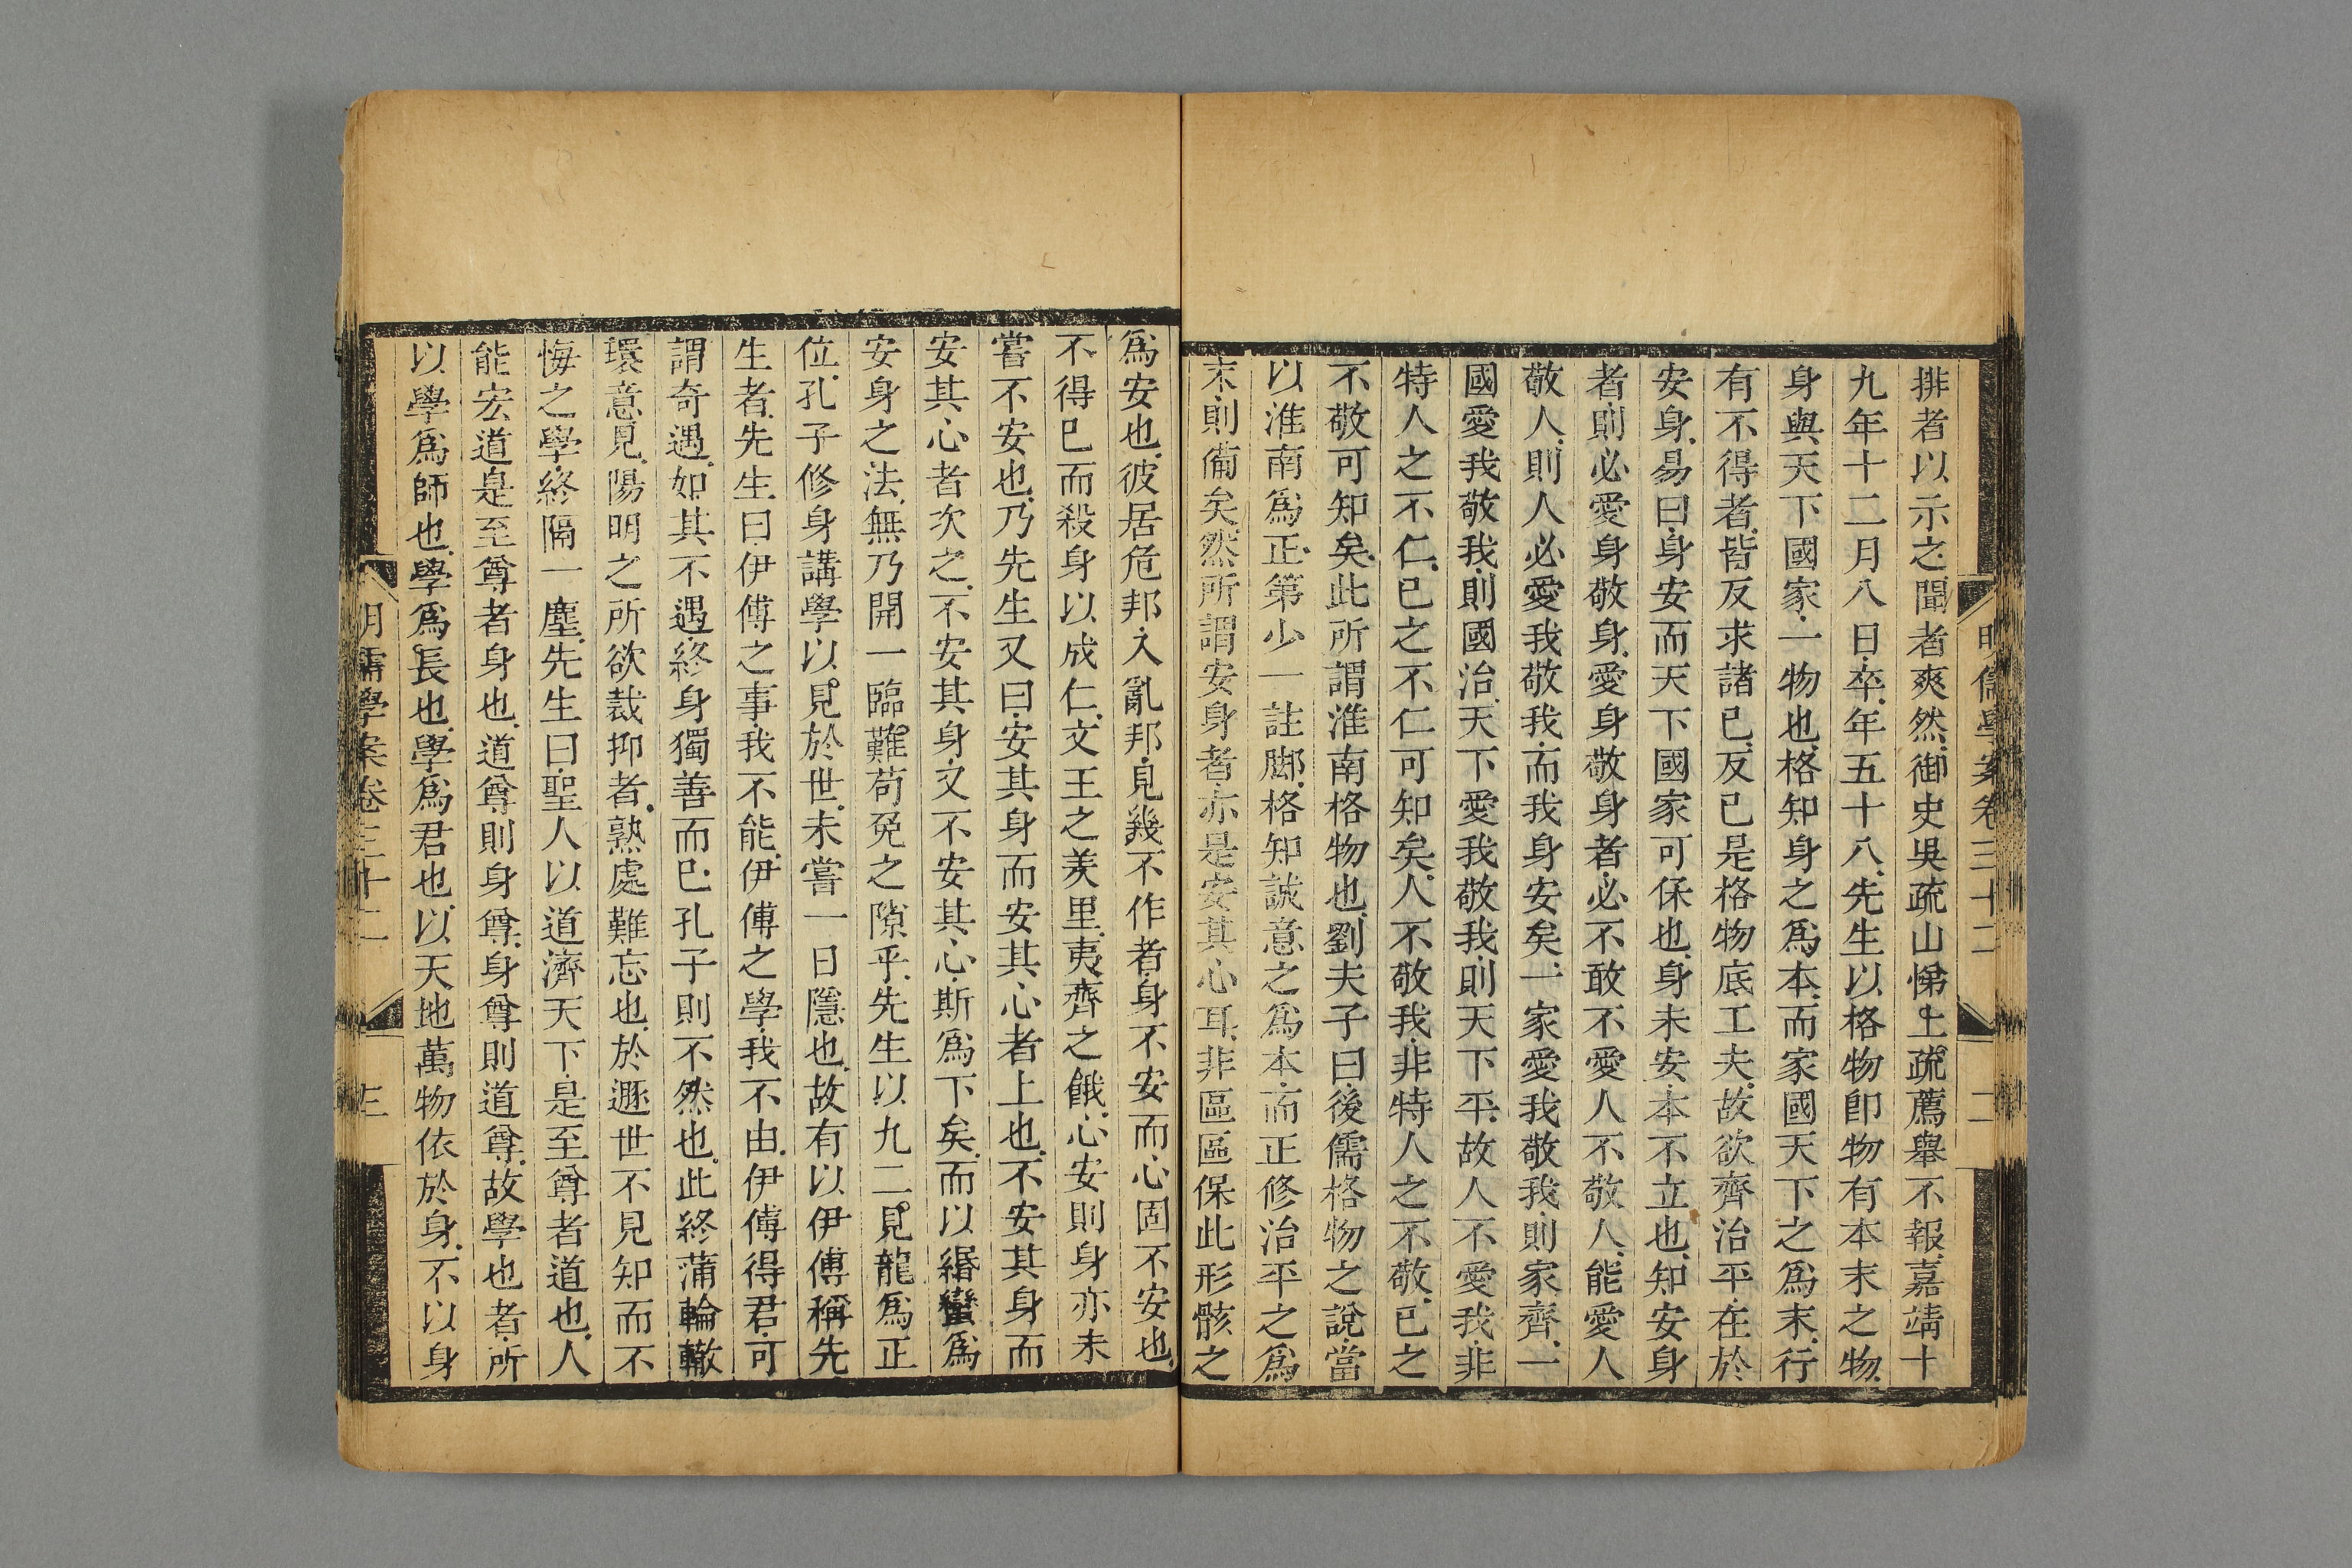 明儒學案卷三十二 二
排者以示之聞者爽然御史吳疏山悌上疏薦舉不報嘉靖十
九年十二月八日卒年五十八先生以格物即物有本末之物
身與天下國家一物也格知身之爲本而家國天下之爲末行
有不得者皆反求諸已反已是格物底工夫故欲齊治平在於
安身易曰身安而天下國家可保也身未安本不立也知安身
者則必愛身敬身愛身敬身者必不敢不愛人不敬人能愛人
敬人則人必愛我敬我而我身安矣一家愛我敬我則家齊一
國愛我敬我則國治天下愛我敬我則天下平故人不愛我非
特人之不仁已之不仁可知矣人不敬我非特人之不敬已之
不敬可知矣此所謂淮南格物也劉夫子曰後儒格物之說當
以淮南爲正第少一註脚格知誠意之爲本而正修治平之爲
末則備矣然所謂安身者亦是安其心耳非區區保此形骸之
爲安也彼居危邦入亂邦見幾不作者身不安而心固不安也
不得已而殺身以成仁文王之羑里夷齊之餓心安則身亦未
嘗不安也乃先生又曰安其身而安其心者上也不安其身而
安其心者次之不安其身又不安其心斯爲下矣而以緡蠻爲
安身之法無乃開一臨難苟免之隙乎先生以九二見龍爲正
位孔子修身講學以見於世未嘗一日隱也故有以伊傅稱先
生者先生曰伊傅之事我不能伊傅之學我不由伊傅得君可
謂奇遇如其不遇終身獨善而已孔子則不然也此終蒲輪轍
環意見陽明之所欲裁抑者熟處難忘也於遯世不見知而不
悔之學終隔一塵先生曰聖人以道濟天下是至尊者道也人
能宏道是至尊者身也道尊則身尊身尊則道尊故學也者所
以學爲師也學爲長也學爲君也以天地萬物依於身不以身
明儒學案卷三十二 三